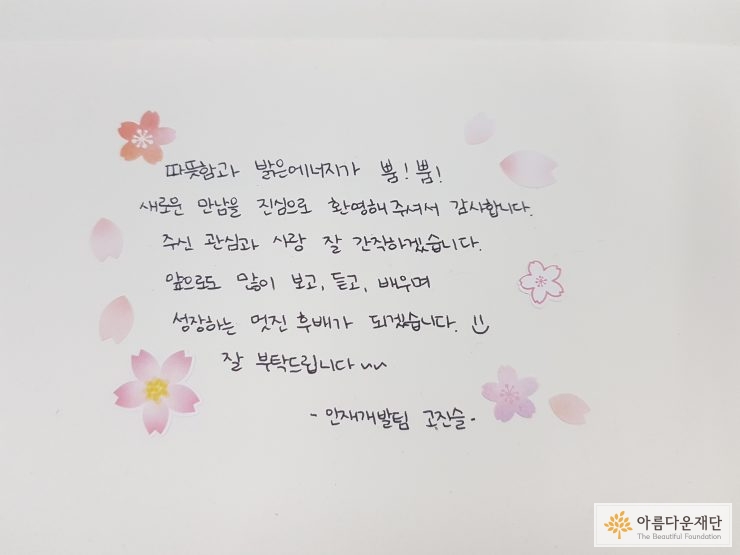 따뜻함과 밝은에너지가 뿜! 뿜!
새로운 만남을 진심으로 환영해주셔서 감사합니다.
주신 관심과 사랑 잘 간직하겠습니다.
앞으로도 많이 보고, 듣고, 배우며
성장하는 멋진 후배가 되겠습니다. :)
잘 부탁드립니다~~
- 인재개발팀 고잔슬-
아름다운재단
The Beautiful Foundation